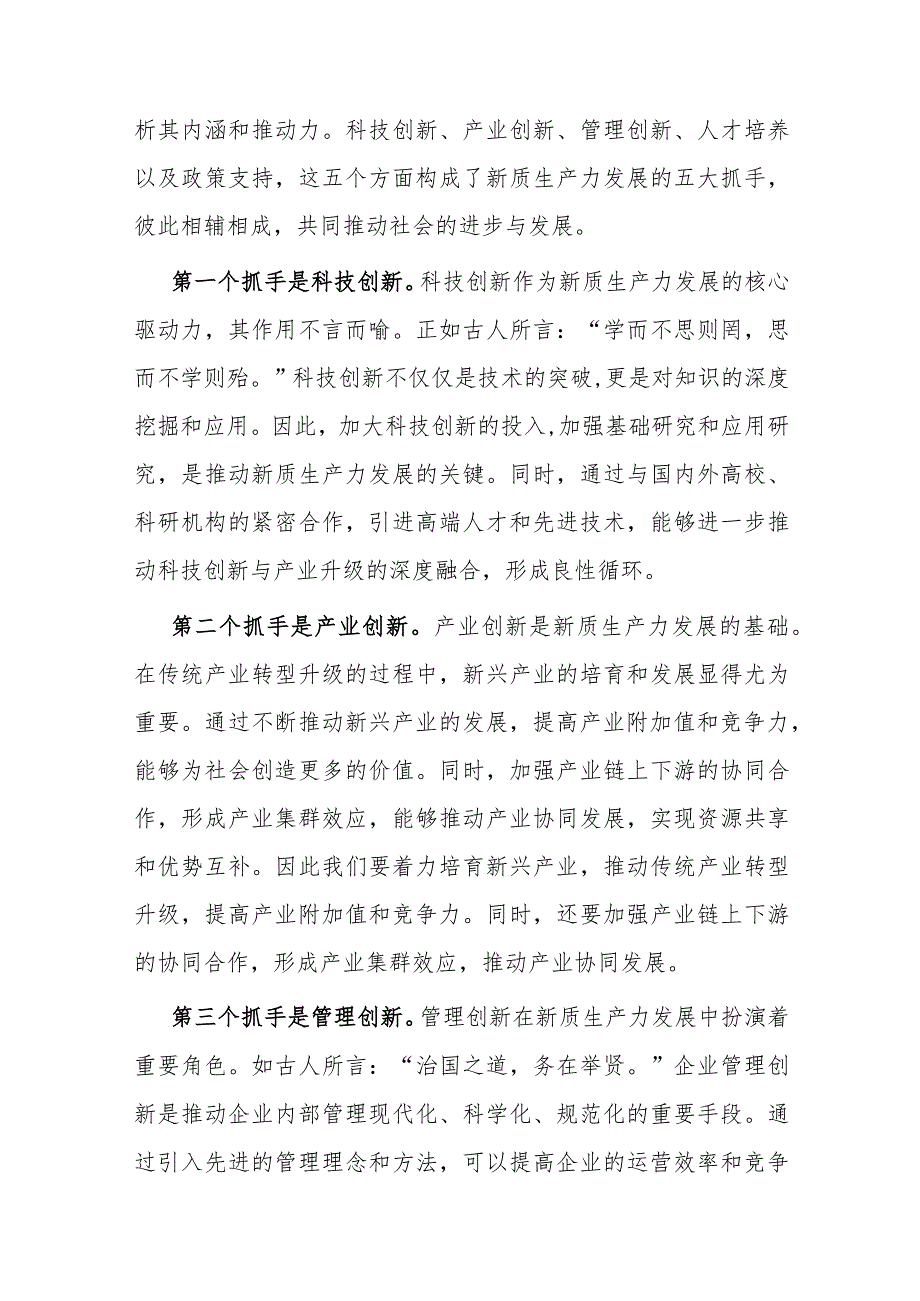 析其内涵和推动力。科技创新、产业创新、管理创新、人才培养
以及政策支持，这五个方面构成了新质生产力发展的五大抓手，
彼此相辅相成，共同推动社会的进步与发展。
第一个抓手是科技创新。科技创新作为新质生产力发展的核心
驱动力，其作用不言而喻。正如古人所言：“学而不思则罔，思
而不学则殆。”科技创新不仅仅是技术的突破,更是对知识的深度
挖掘和应用。因此，加大科技创新的投入,加强基础研究和应用研
究，是推动新质生产力发展的关键。同时，通过与国内外高校、
科研机构的紧密合作，引进高端人才和先进技术，能够进一步推
动科技创新与产业升级的深度融合，形成良性循环。
第二个抓手是产业创新。产业创新是新质生产力发展的基础。
在传统产业转型升级的过程中，新兴产业的培育和发展显得尤为
重要。通过不断推动新兴产业的发展，提高产业附加值和竞争力，
能够为社会创造更多的价值。同时，加强产业链上下游的协同合
作，形成产业集群效应，能够推动产业协同发展，实现资源共享
和优势互补。因此我们要着力培育新兴产业，推动传统产业转型
升级，提高产业附加值和竞争力。同时，还要加强产业链上下游
的协同合作，形成产业集群效应，推动产业协同发展。
第三个抓手是管理创新。管理创新在新质生产力发展中扮演着
重要角色。如古人所言：“治国之道，务在举贤。”企业管理创
新是推动企业内部管理现代化、科学化、规范化的重要手段。通
过引入先进的管理理念和方法，可以提高企业的运营效率和竞争